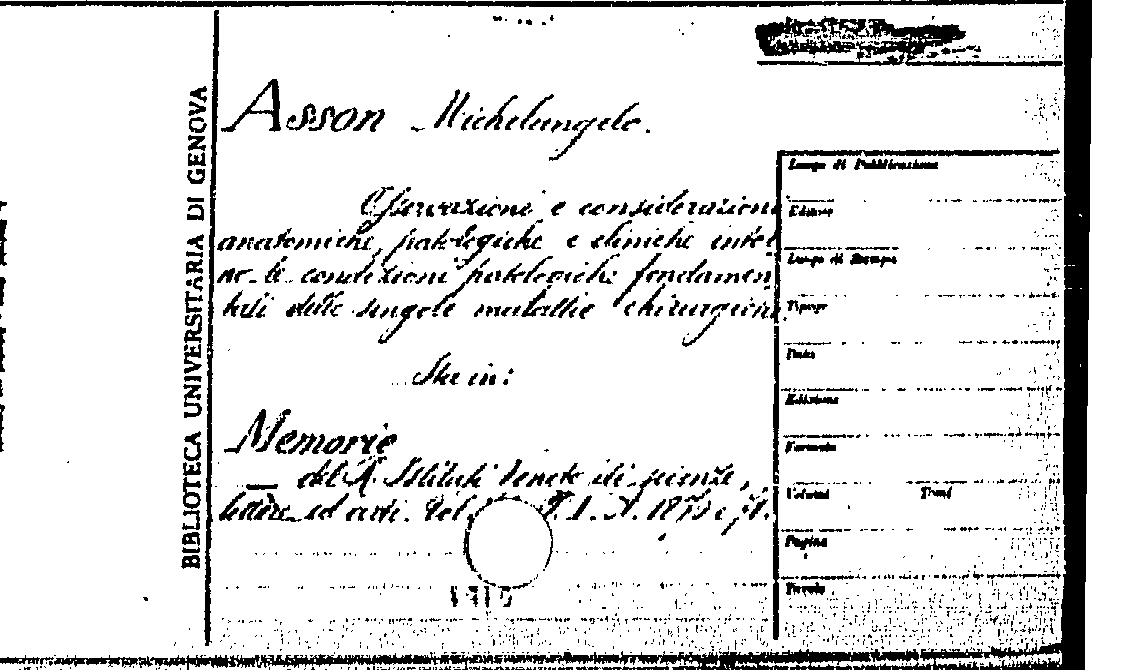 BIBLIOTECA UNIVERSITARIA DI GENOVA
Asson Michelangelo.
Osservazioni e considerazioni
anatomiche, patologiche e cliniche intor
no le condizioni patologiche fondamen
tali delle singole malattie chirurgiche
Sta in:
Memorie
del R. Istituto Veneto di scienze,
lettere ed arti. Vol.
Luogo di Pubblicazione
Editore
Luogo di Stampa
Tipogr
Data
Edizione
Formato
Volumi Tomi
Pagine
Tavole